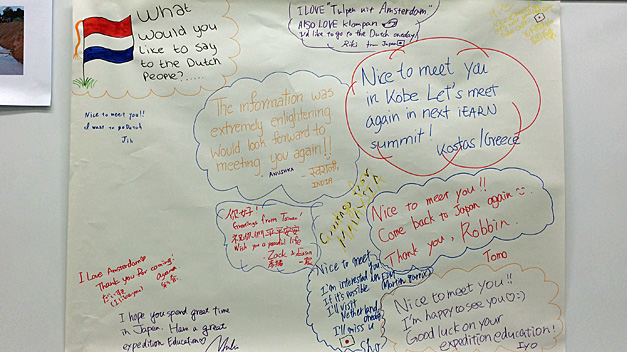 What
would you
like to say
to the Dutch
People?.....
I LOVE "Tulpen uit Amsterdam"
ALSO LOVE klompen
I'd like to go to the Dutch oneday!
Riki from Japan
Nice to meet you!!
I want to go Dutch
Jih
The information was
extremely enlightening
would look forward to
meeting you again!!
- ANUSHKA
INDIA
Nice to meet you
in Kobe Let's meet
again in next iEARN
summit!
Kostas/Greece
你好!
Greetings from Taiwan!
Wish you a peaceful life
Zack & Eason
Nice to meet!!
Come back to Japan again
Thank you, Robbin.
Tomo
Nice to meet you
I'm interested
If it's possible
I'll visit
Netherland
I'll miss u
Sho
I Love Amsterdam
Thank you for coming!
I hope you spend great time
in Japan. Have a great
expedition Education
Nice to meet you!!
I'm happy to see you :)
Good luck on your
expedition education!
Iyo